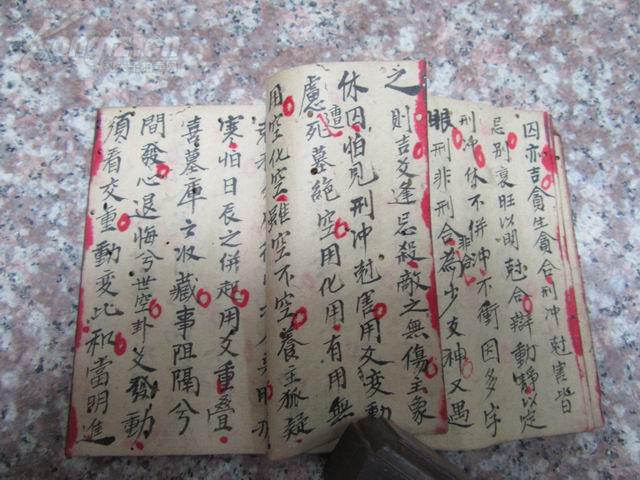 囚亦吉貪生貪合刑沖尅害皆
忌別衰旺以明尅合辯動静以定
刑沖休不併沖不衝因多字
眼刑非刑合非合為少支神又遇
之則吉爻逢忌殺敵之無傷主象
休囚怕見刑沖尅害用爻變動
慮遭死墓絕空用化用有用無
用空化空雖空不空養主狐疑
寒怕日辰之併起用爻重疊
喜墓庫之收藏事阻隔兮
間發心退悔兮世空卦爻發動
須看交重動變比和當明進